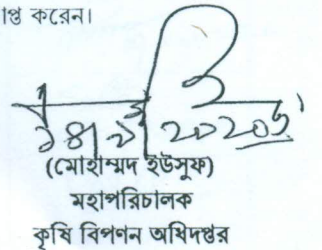 প্তি করেন।
(মোহাম্মদ ইউসুফ)
মহাপরিচালক
কৃষি বিপণন অধিদপ্তর